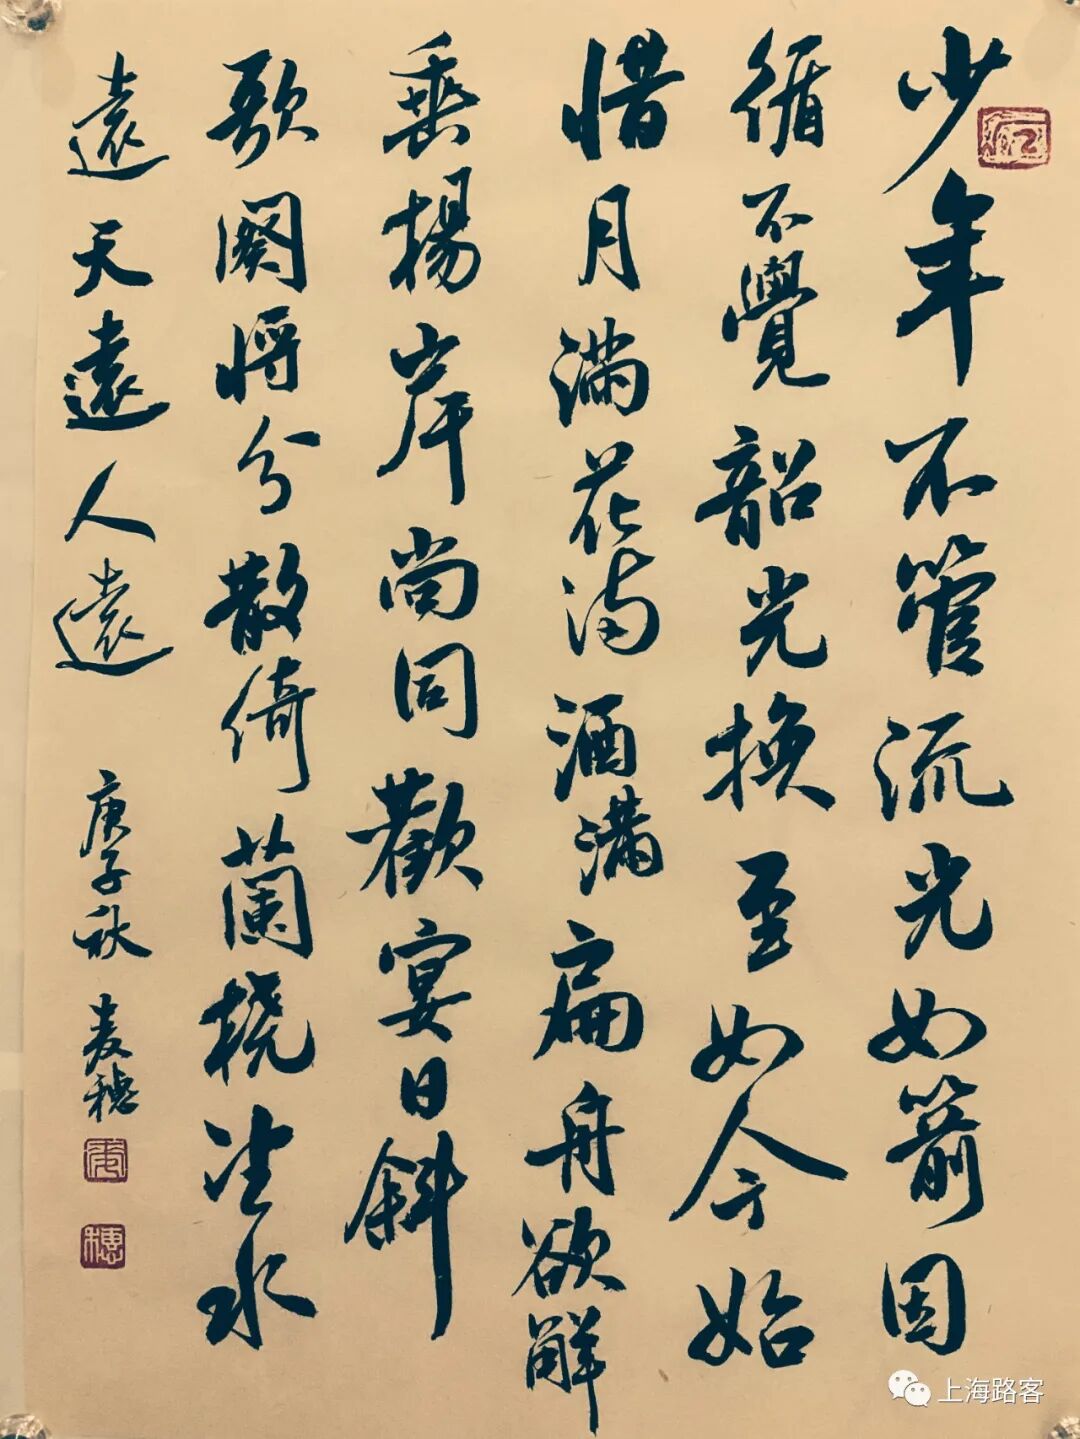 少年不管流光如箭因
循不覺韶光換至如今始
惜月滿花滿酒滿扁舟欲解
垂楊岸尚同歡宴日斜
歌闋將分散倚蘭橈望水
遠天遠人遠
庚子秋 麦穗
上海路客